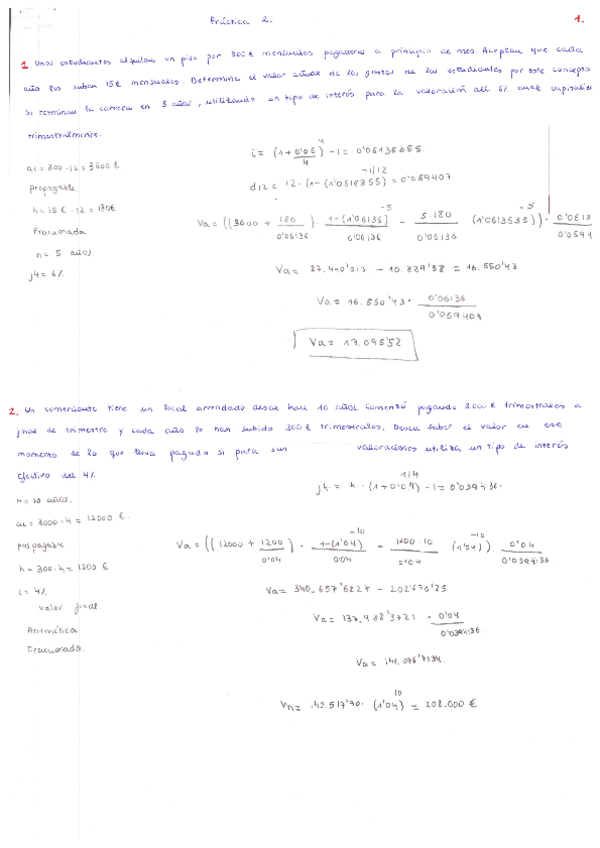 Práctica 2.
1.
1. Unos estudiantes alquilan un piso por 300€ mensuales pagaderos a principio de mes. Aceptan que cada
año les suban 15€ mensuales. Determina el valor actual de los gastos de los estudiantes por este concepto
si terminan la carrera en 5 años, utilizando un tipo de interés para la valoración del 6% anual capitaliza
trimestralmente.
a1 = 300·12 = 3600 €
prepagable
h = 15 € · 12 = 180€
Fraccionada
n = 5 años
j4 = 6%
i = (1 + 0'06/4)^4 - 1 = 0'06136355
d12 = 12 · (1 - (1'0618355)^-1/12) = 0'059407
Va = ((3600 + 180/0'06136) · 1-(1'06136)^-5/0'06136 - 5·180/0'06136 (1'0613635)^-5) · 0'0613/0'0594
Va = 27.440'017 - 10.889'58 = 16.550'43
Va = 16.550'43 · 0'06136/0'059407
Va = 17.095'52
2. Un comerciante tiene un local arrendado desde hace 10 años. Comenzó pagando 3.000€ trimestrales a
final de trimestre y cada año le han subido 300€ trimestrales. Desea saber el valor en ese
momento de lo que lleva pagado si para sus valoraciones utiliza un tipo de interés
efectivo del 4%
n = 10 años.
a1 = 3000 · 4 = 12000 €.
pospagable
h = 300·4 = 1200 €
i = 4%
Valor final.
Aritmética
Fraccionada.
j4 = 4 · (1+0'04)^1/4 - 1 = 0'039436.
Va = ((12000 + 1200/0'04) · 1-(1'04)^-10/0'04 - 1200·10/0'04 (1'04)^-10) 0'04/0'039436
Va = 340.657'6227 - 202'670'25
Va = 137.438'3721 · 0'04/0'039436
Va =
Vn = · (1'04)^10 = 208.000 €